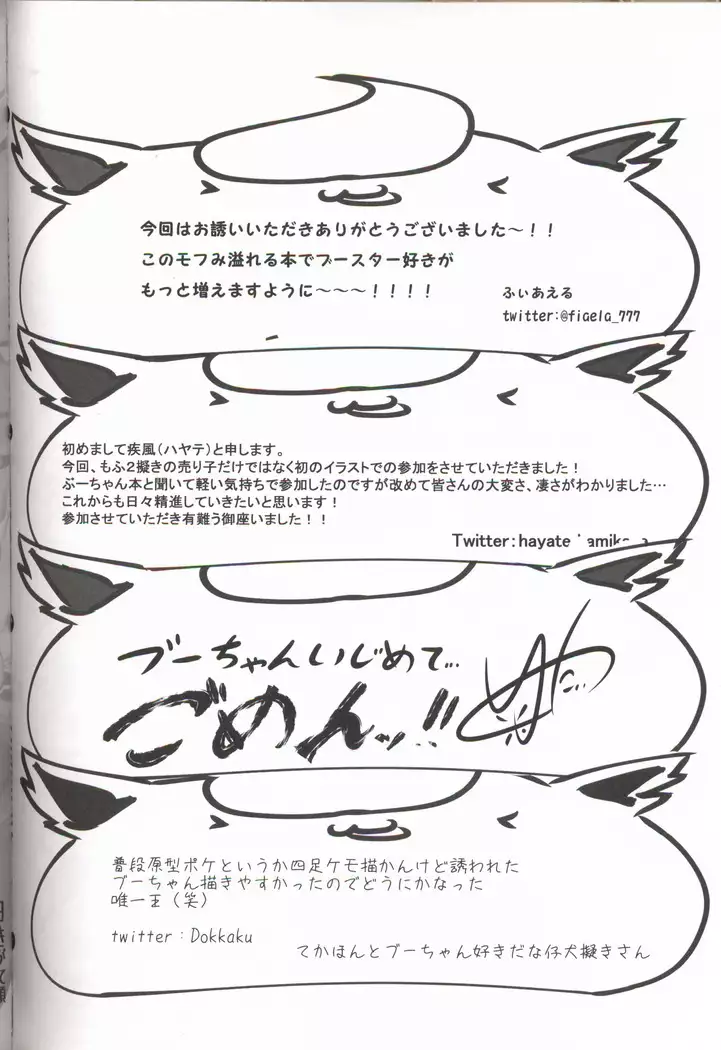 今回はお誘いいただきありがとうございました～！！
このモフみ溢れる本でブースター好きが
もっと増えますように～～～！！！！
ふぃあえる
twitter:@fiaela_777
初めまして疾風(ハヤテ)と申します。
今回、もふ2擬きの売り子だけではなく初のイラストでの参加をさせていただきました！
ぶーちゃん本と聞いて軽い気持ちで参加したのですが改めて皆さんの大変さ、凄さがわかりました…
これからも日々精進していきたいと思います！
参加させていただき有難う御座いました！！
Twitter:hayate
ブーちゃんいじめて…
ごめんッ!!
普段原型ポケというか四足ケモ描かんけど誘われた
ブーちゃん描きやすかったのでどうにかなった
唯一王（笑）
twitter：Dokkaku
てかほんとブーちゃん好きだな仔犬擬きさん